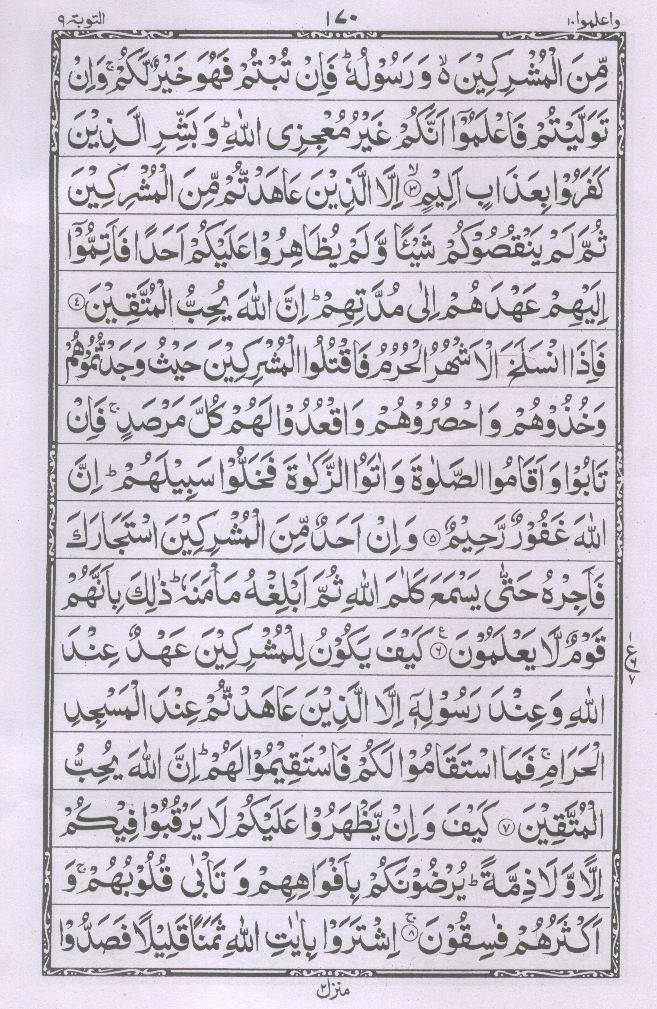 واعلموا۱۰ ۱۷۰ التوبة۹
مِّنَ الْمُشْرِكِيْنَ ۙ۬ وَ رَسُوْلُهٗ ؕ فَاِنْ تُبْتُمْ فَهُوَ خَيْرٌ لَّكُمْ ۚ وَاِنْ
تَوَلَّيْتُمْ فَاعْلَمُوْۤا اَنَّكُمْ غَيْرُ مُعْجِزِى اللّٰهِ ؕ وَ بَشِّرِ الَّذِيْنَ
كَفَرُوْا بِعَذَابٍ اَلِيْمٍ ۙ۳ اِلَّا الَّذِيْنَ عَاهَدْتُّمْ مِّنَ الْمُشْرِكِيْنَ
ثُمَّ لَمْ يَنْقُصُوْكُمْ شَيْئًا وَّ لَمْ يُظَاهِرُوْا عَلَيْكُمْ اَحَدًا فَاَتِمُّوْۤا
اِلَيْهِمْ عَهْدَهُمْ اِلٰى مُدَّتِهِمْ ؕ اِنَّ اللّٰهَ يُحِبُّ الْمُتَّقِيْنَ ۴
فَاِذَا انْسَلَخَ الْاَشْهُرُ الْحُرُمُ فَاقْتُلُوا الْمُشْرِكِيْنَ حَيْثُ وَجَدْتُّمُوْهُمْ
وَخُذُوْهُمْ وَاحْصُرُوْهُمْ وَاقْعُدُوْا لَهُمْ كُلَّ مَرْصَدٍ ۚ فَاِنْ
تَابُوْا وَاَقَامُوا الصَّلٰوةَ وَاٰتَوُا الزَّكٰوةَ فَخَلُّوْا سَبِيْلَهُمْ ؕ اِنَّ
اللّٰهَ غَفُوْرٌ رَّحِيْمٌ ۵ وَاِنْ اَحَدٌ مِّنَ الْمُشْرِكِيْنَ اسْتَجَارَكَ
فَاَجِرْهُ حَتّٰى يَسْمَعَ كَلٰمَ اللّٰهِ ثُمَّ اَبْلِغْهُ مَاْمَنَهٗ ؕ ذٰلِكَ بِاَنَّهُمْ
قَوْمٌ لَّا يَعْلَمُوْنَ ۶ ع كَيْفَ يَكُوْنُ لِلْمُشْرِكِيْنَ عَهْدٌ عِنْدَ
۱ ع ۶ ۷
اللّٰهِ وَعِنْدَ رَسُوْلِهٖۤ اِلَّا الَّذِيْنَ عَاهَدْتُّمْ عِنْدَ الْمَسْجِدِ
الْحَرَامِ ۚ فَمَا اسْتَقَامُوْا لَكُمْ فَاسْتَقِيْمُوْا لَهُمْ ؕ اِنَّ اللّٰهَ يُحِبُّ
الْمُتَّقِيْنَ ۷ كَيْفَ وَاِنْ يَّظْهَرُوْا عَلَيْكُمْ لَا يَرْقُبُوْا فِيْكُمْ
اِلًّا وَّلَا ذِمَّةً ؕ يُرْضُوْنَكُمْ بِاَفْوَاهِهِمْ وَ تَاْبٰى قُلُوْبُهُمْ ۚ وَ
اَكْثَرُهُمْ فٰسِقُوْنَ ۚ۸ اِشْتَرَوْا بِاٰيٰتِ اللّٰهِ ثَمَنًا قَلِيْلًا فَصَدُّوْا
منزل۲